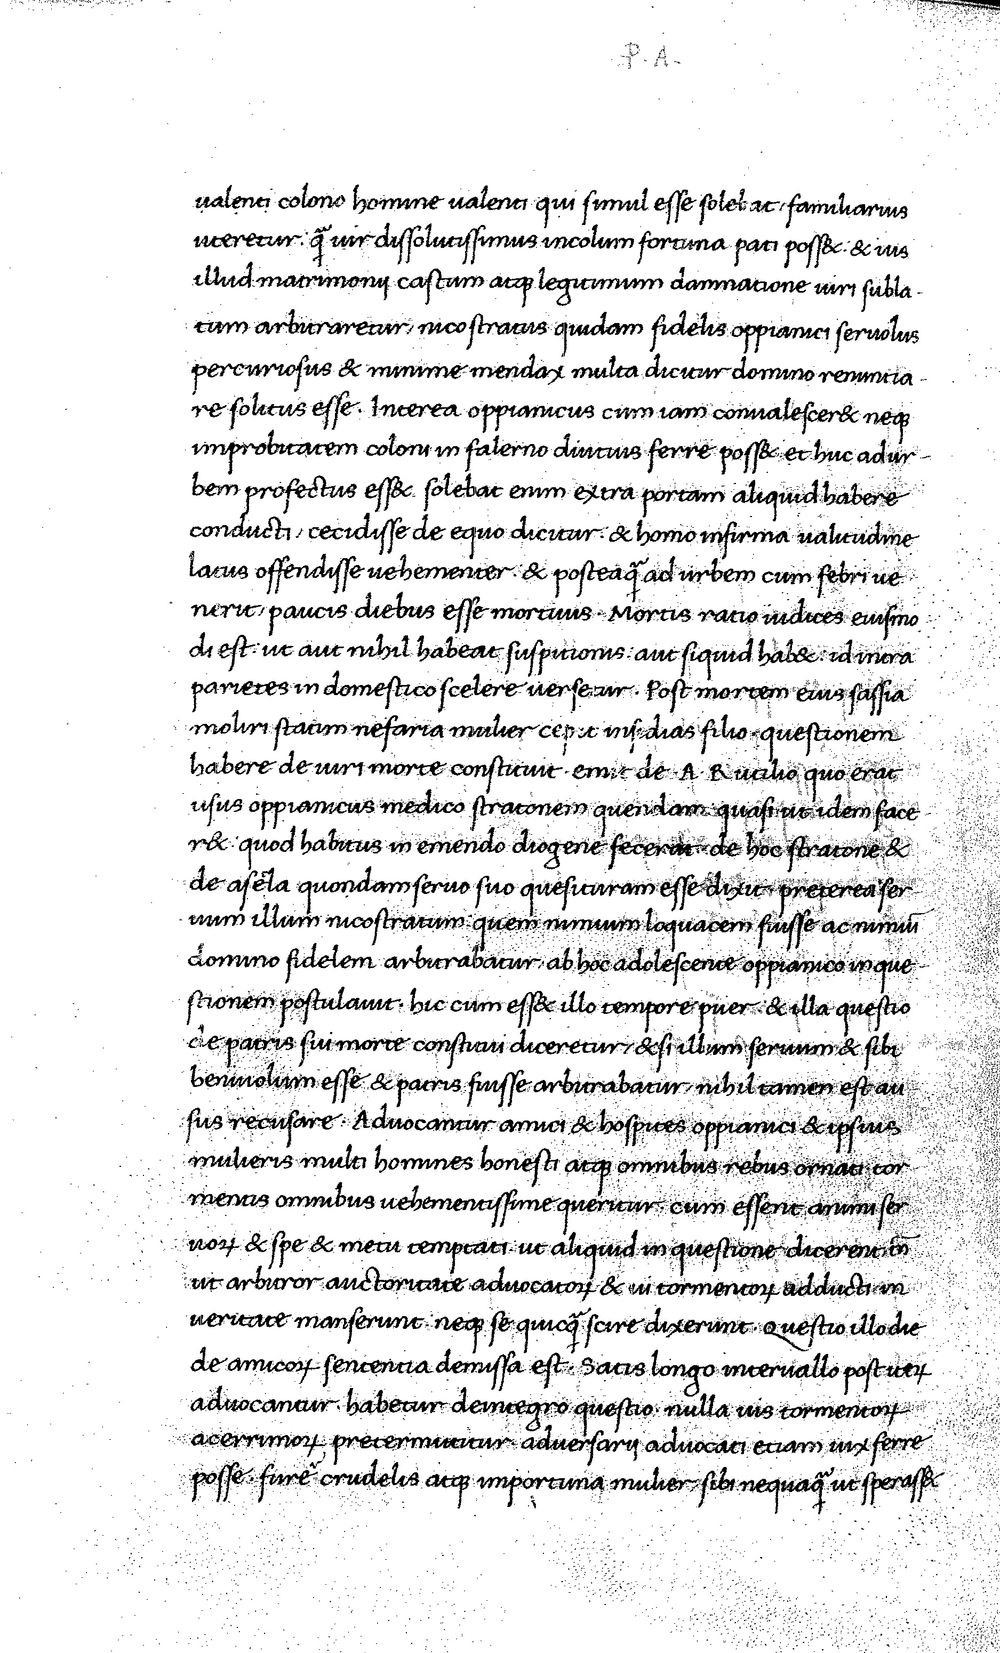 P. A.
ualenti colono homine ualenti qui simul esse solebat, familiarius
uteretur. q̄ uir dissolutissimus incolumi fortuna pati poss&. & ius
illud matrimonij castum atq; legitimum damnatione uiri subla-
tum arbitraretur, nicostratus quidam fidelis oppianici seruolus
percuriosus & minime mendax multa dicitur domino renuntia-
re solitus esse. Interea oppianicus cum iam conualescer& neq;
improbitatem coloni in falerno diutius ferre poss& et huc ad ur-
bem profectus ess&. solebat enim extra portam aliquid habere
conducti, cecidisse de equo dicitur. & homo infirma ualitudine
latus offendisse uehementer. & posteaq̄ ad urbem cum febri ue
nerit, paucis diebus esse mortuus. Mortis ratio iudices eiusmo
di est. ut aut nihil habeat suspitionis. aut siquid hab&. id intra
parietes in domestico scelere uersetur. Post mortem eius sassia
moliri statim nefaria mulier cepit insidias filio. questionem
habere de uiri morte constituit. emit de A. Rutilio quo erat
usus oppianicus medico stratonem quendam. quasi ut idem face
r&. quod habitus in emendo diogene fecerat. de hoc stratone &
de asela quondam seruo suo quesituram esse dixit. preterea ser
uum illum nicostratum quem nimium loquacem fuisse ac nimiū
domino fidelem arbitrabatur, ab hoc adolescente oppianico in que-
stionem postulauit. hic cum ess& illo tempore puer. & illa questio
de patris sui morte constitui diceretur, & si illum seruum & sibi
beniuolum esse & patris fuisse arbitrabatur, nihil tamen est au
sus recusare. Aduocantur amici & hospites oppianici & ipsius
mulieris multi homines honesti atq; omnibus rebus ornati tor
mentis omnibus uehementissime queritur. cum essent animi ser
uoꝝ & spe & metu temptati. ut aliquid in questione dicerent. tn̄
ut arbitror auctoritate aduocatoꝝ & ui tormentoꝝ adducti in
ueritate manserunt. neq; se quicq̄ scire dixerunt. Questio illo die
de amicoꝝ sententia demissa est. Satis longo interuallo post iteꝝ
aduocantur. habetur deintegro questio. nulla uis tormentoꝝ
acerrimoꝝ pretermittitur. aduersarij aduocati etiam uix ferre
posse. furer̄ crudelis atq; importuna mulier, sibi nequaq̄ ut sperass&